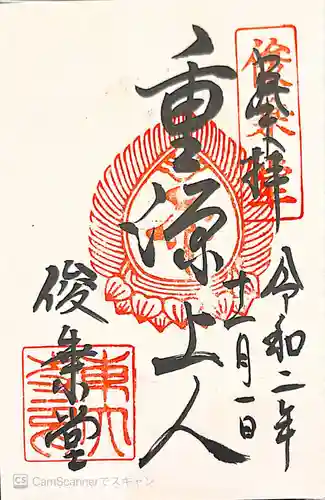 奉拝
令和二年
十一月一日
重源上人
俊乗堂
CS CamScannerでスキャン